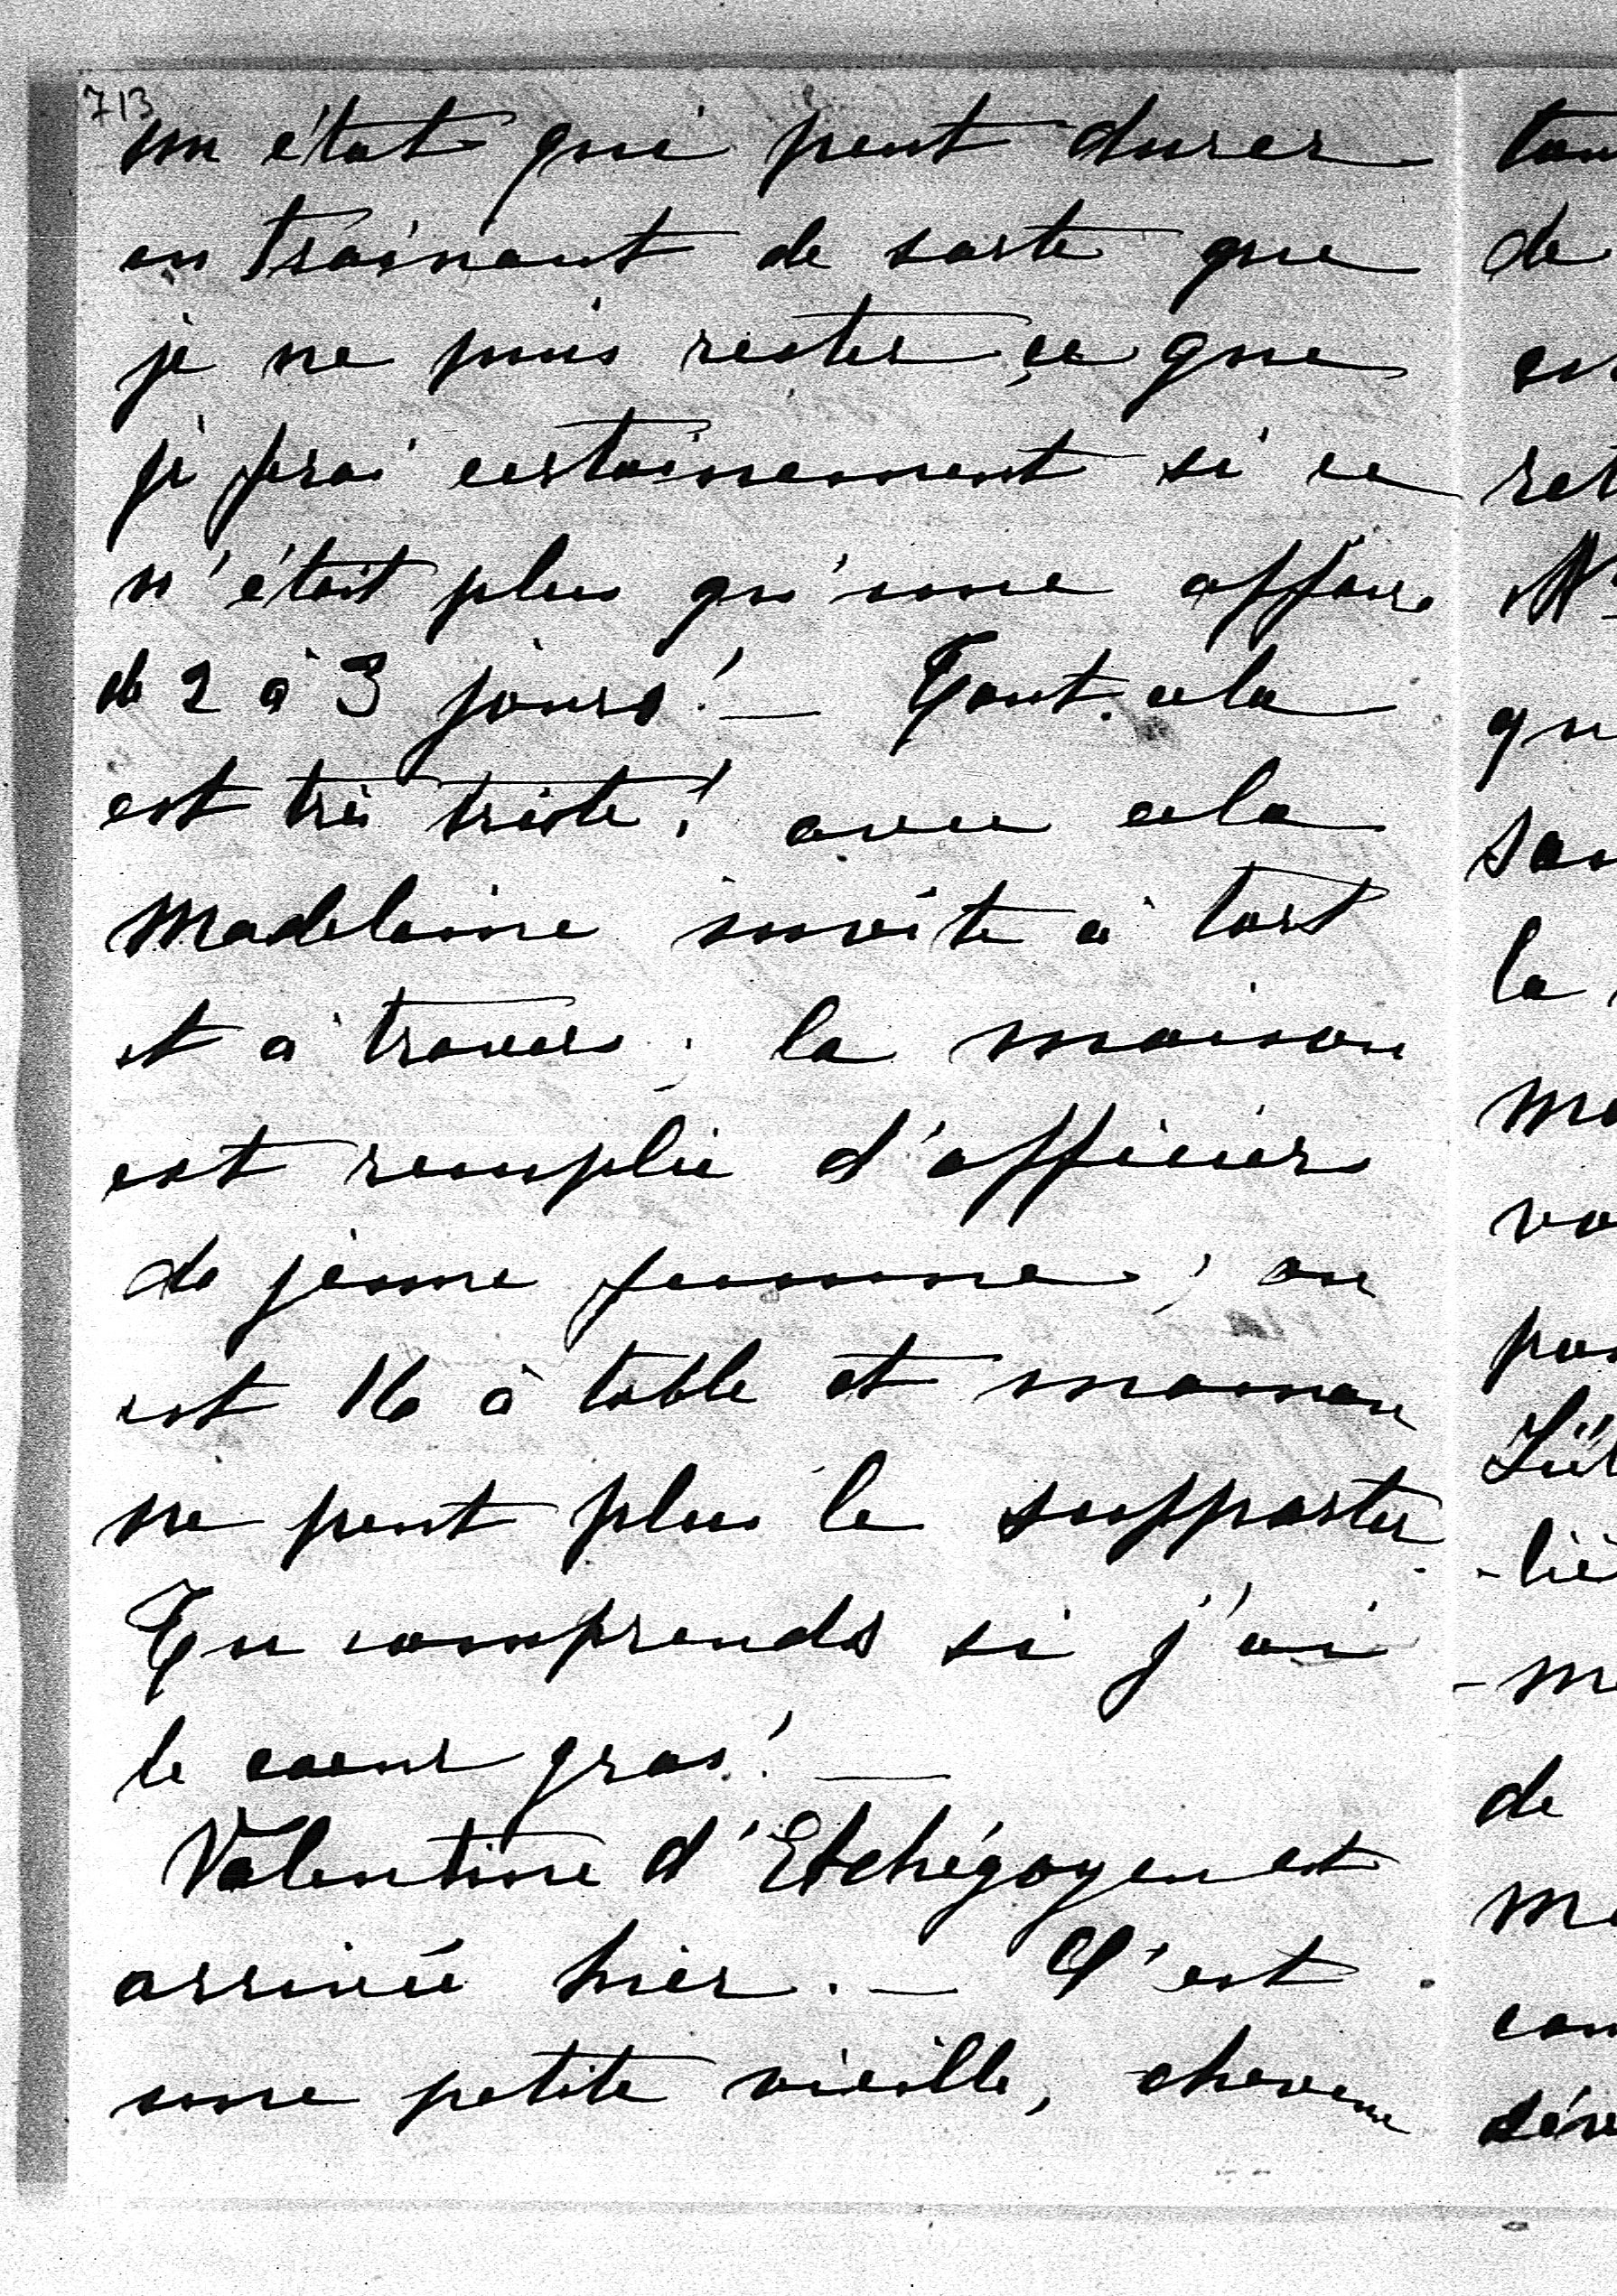 713
un état qui peut durer
en trainant de sorte que
je ne puis rester ce que
je ferai certainement si ce
n'était plus qu'une affaire
de 2 à 3 jours! — Tout cela
est très triste! avec cela
Madeleine invite à tort
et à travers ; la maison
est remplie d'officiers
de jeune femme, on
est 16 à table et maman
ne peut plus le supporter.
Tu comprends si j'ai
le coeur gros! —
Valentine d'Etchégoyen est
arrivée hier. — C'est
une petite vieille,
de
la
de